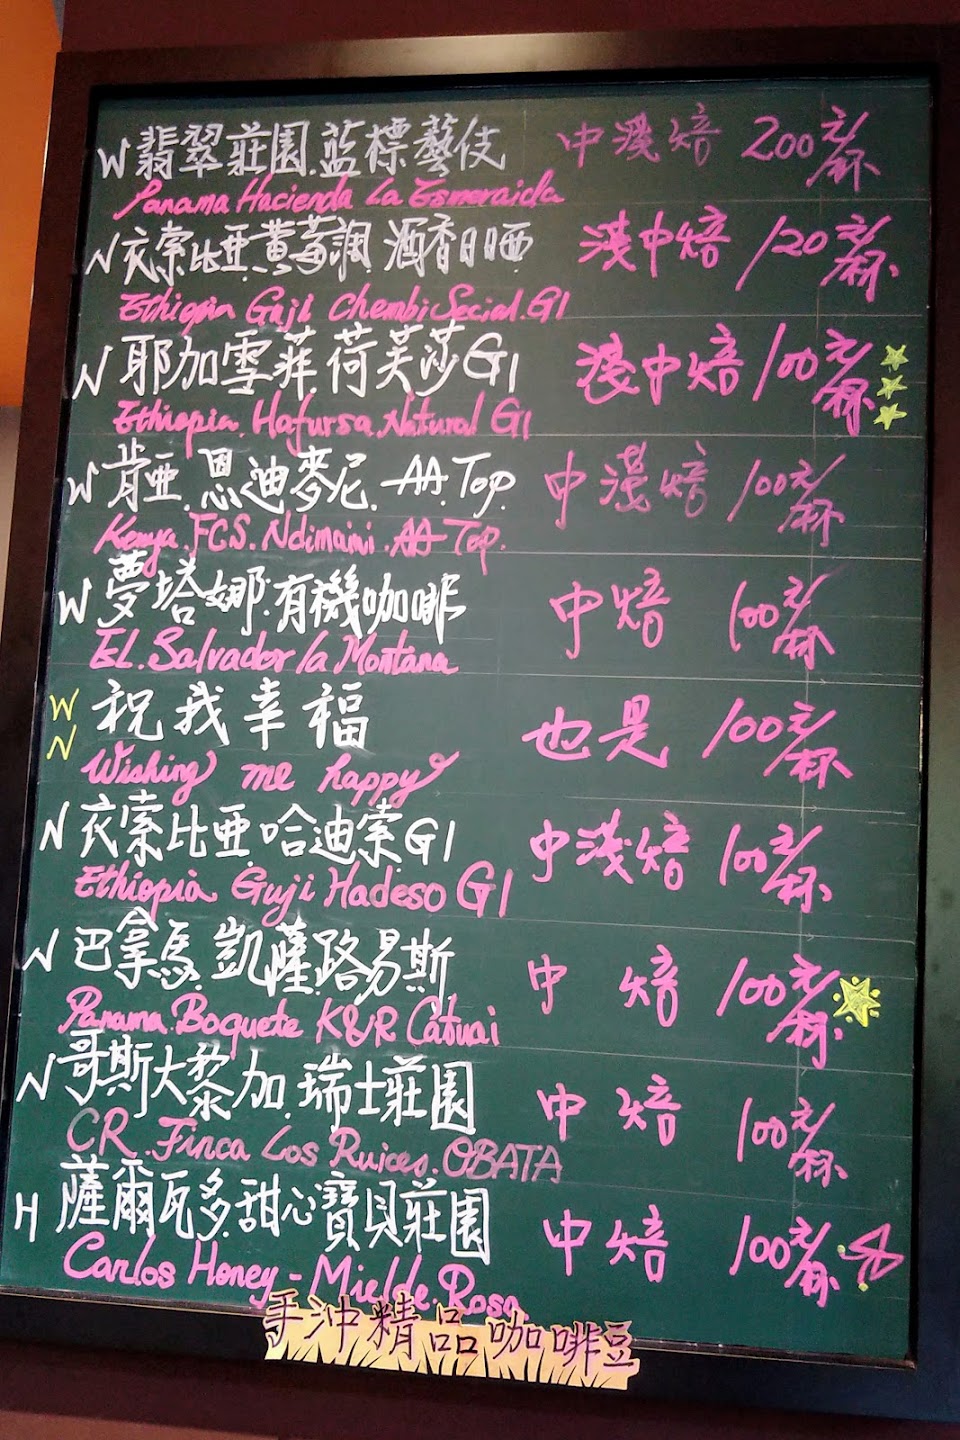 W 翡翠莊園.藍標藝伎 中淺焙 200元/杯
Panama Hacienda La Esmeraida
N 衣索比亞.黃莓調.酒香日晒 淺中焙 120元/杯
Ethiopia Guji Chembi Secial.G1
N 耶加雪菲.荷芙莎G1 淺中焙 100元/杯
Ethiopia.Hafursa.Natural G1
W 肯亞.恩迪麥尼.AA.Top 中淺焙 100元/杯
Kenya.FCS.Ndimaini.AA Top.
W 夢塔娜.有機咖啡 中焙 100元/杯
EL.Salvador la Montana
W N 祝我幸福 也是 100元/杯
Wishing me happy
N 衣索比亞.哈迪索G1 中淺焙 100元/杯
Ethiopia Guji Hadeso G1
N 巴拿馬.凱薩路易斯 中焙 100元/杯
Panama.Boquete K&R Catuai
N 哥斯大黎加.瑞士莊園 中焙 100元/杯
CR.Finca Los Ruices.OBATA
H 薩爾瓦多甜心寶貝莊園 中焙 100元/杯
Carlos Honey-Mielde.Rosa
手沖精品咖啡豆